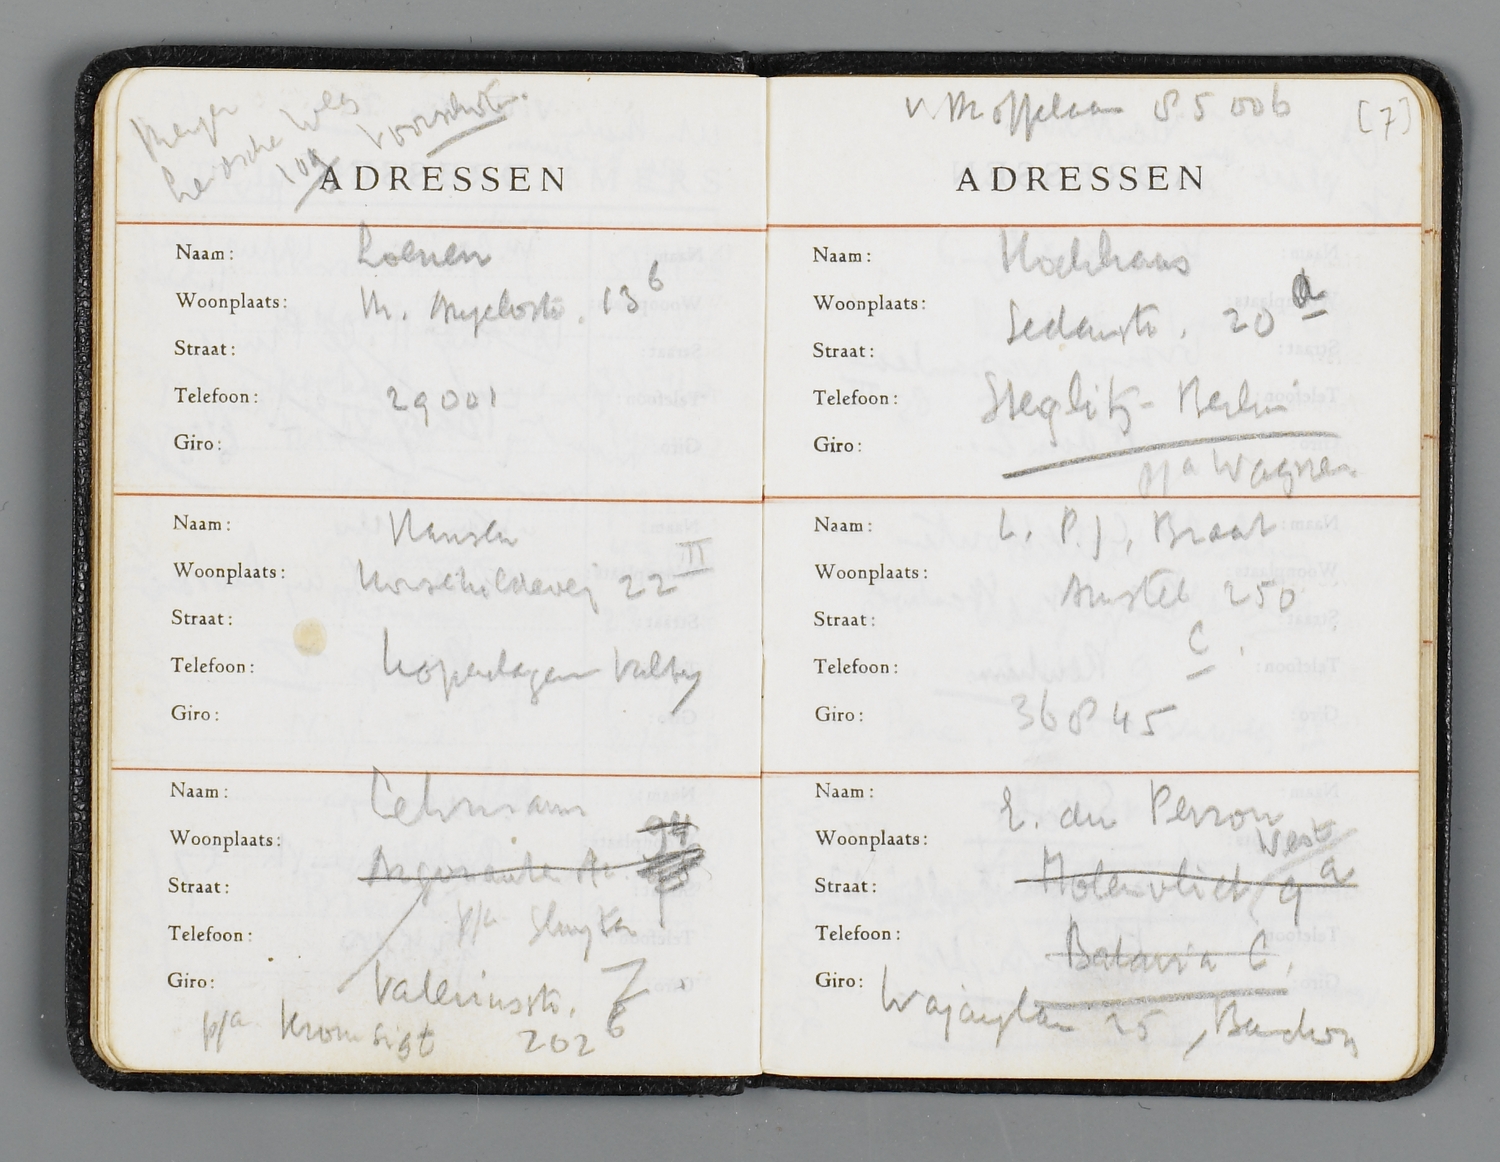 Voorschoten.
ADRESSEN
Naam: Loenen
Woonplaats: M. 13 6
Straat:
Telefoon: 29001
Giro:
Naam: Hansen
Woonplaats: 22 II
Straat:
Telefoon: Kopenhagen Valby
Giro:
Naam:
Woonplaats: 94
Straat:
Telefoon: p/a
Giro: Valeriusstr. 7
p/a Kromsigt 202 6
v. Moffelaan 85006 [7]
ADRESSEN
Naam: Hochhaus
Woonplaats: Sedanstr. 20 a
Straat:
Telefoon: Steglitz - Berlin
Giro:
p/a Wagner
Naam: L. P. J. Braat
Woonplaats: Amstel 250
Straat:
Telefoon: C.
Giro: 36845
Naam: E. du Perron
Woonplaats: West
Straat: Molenvliet 9 a
Telefoon: Batavia C.
Giro: Wajanglaan 25, Bandoeng